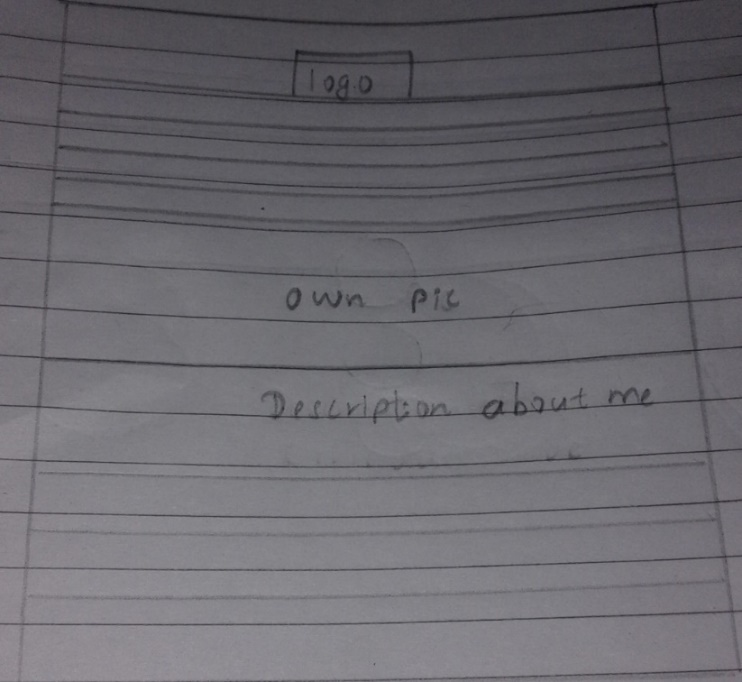 logo
own pic
Description about me